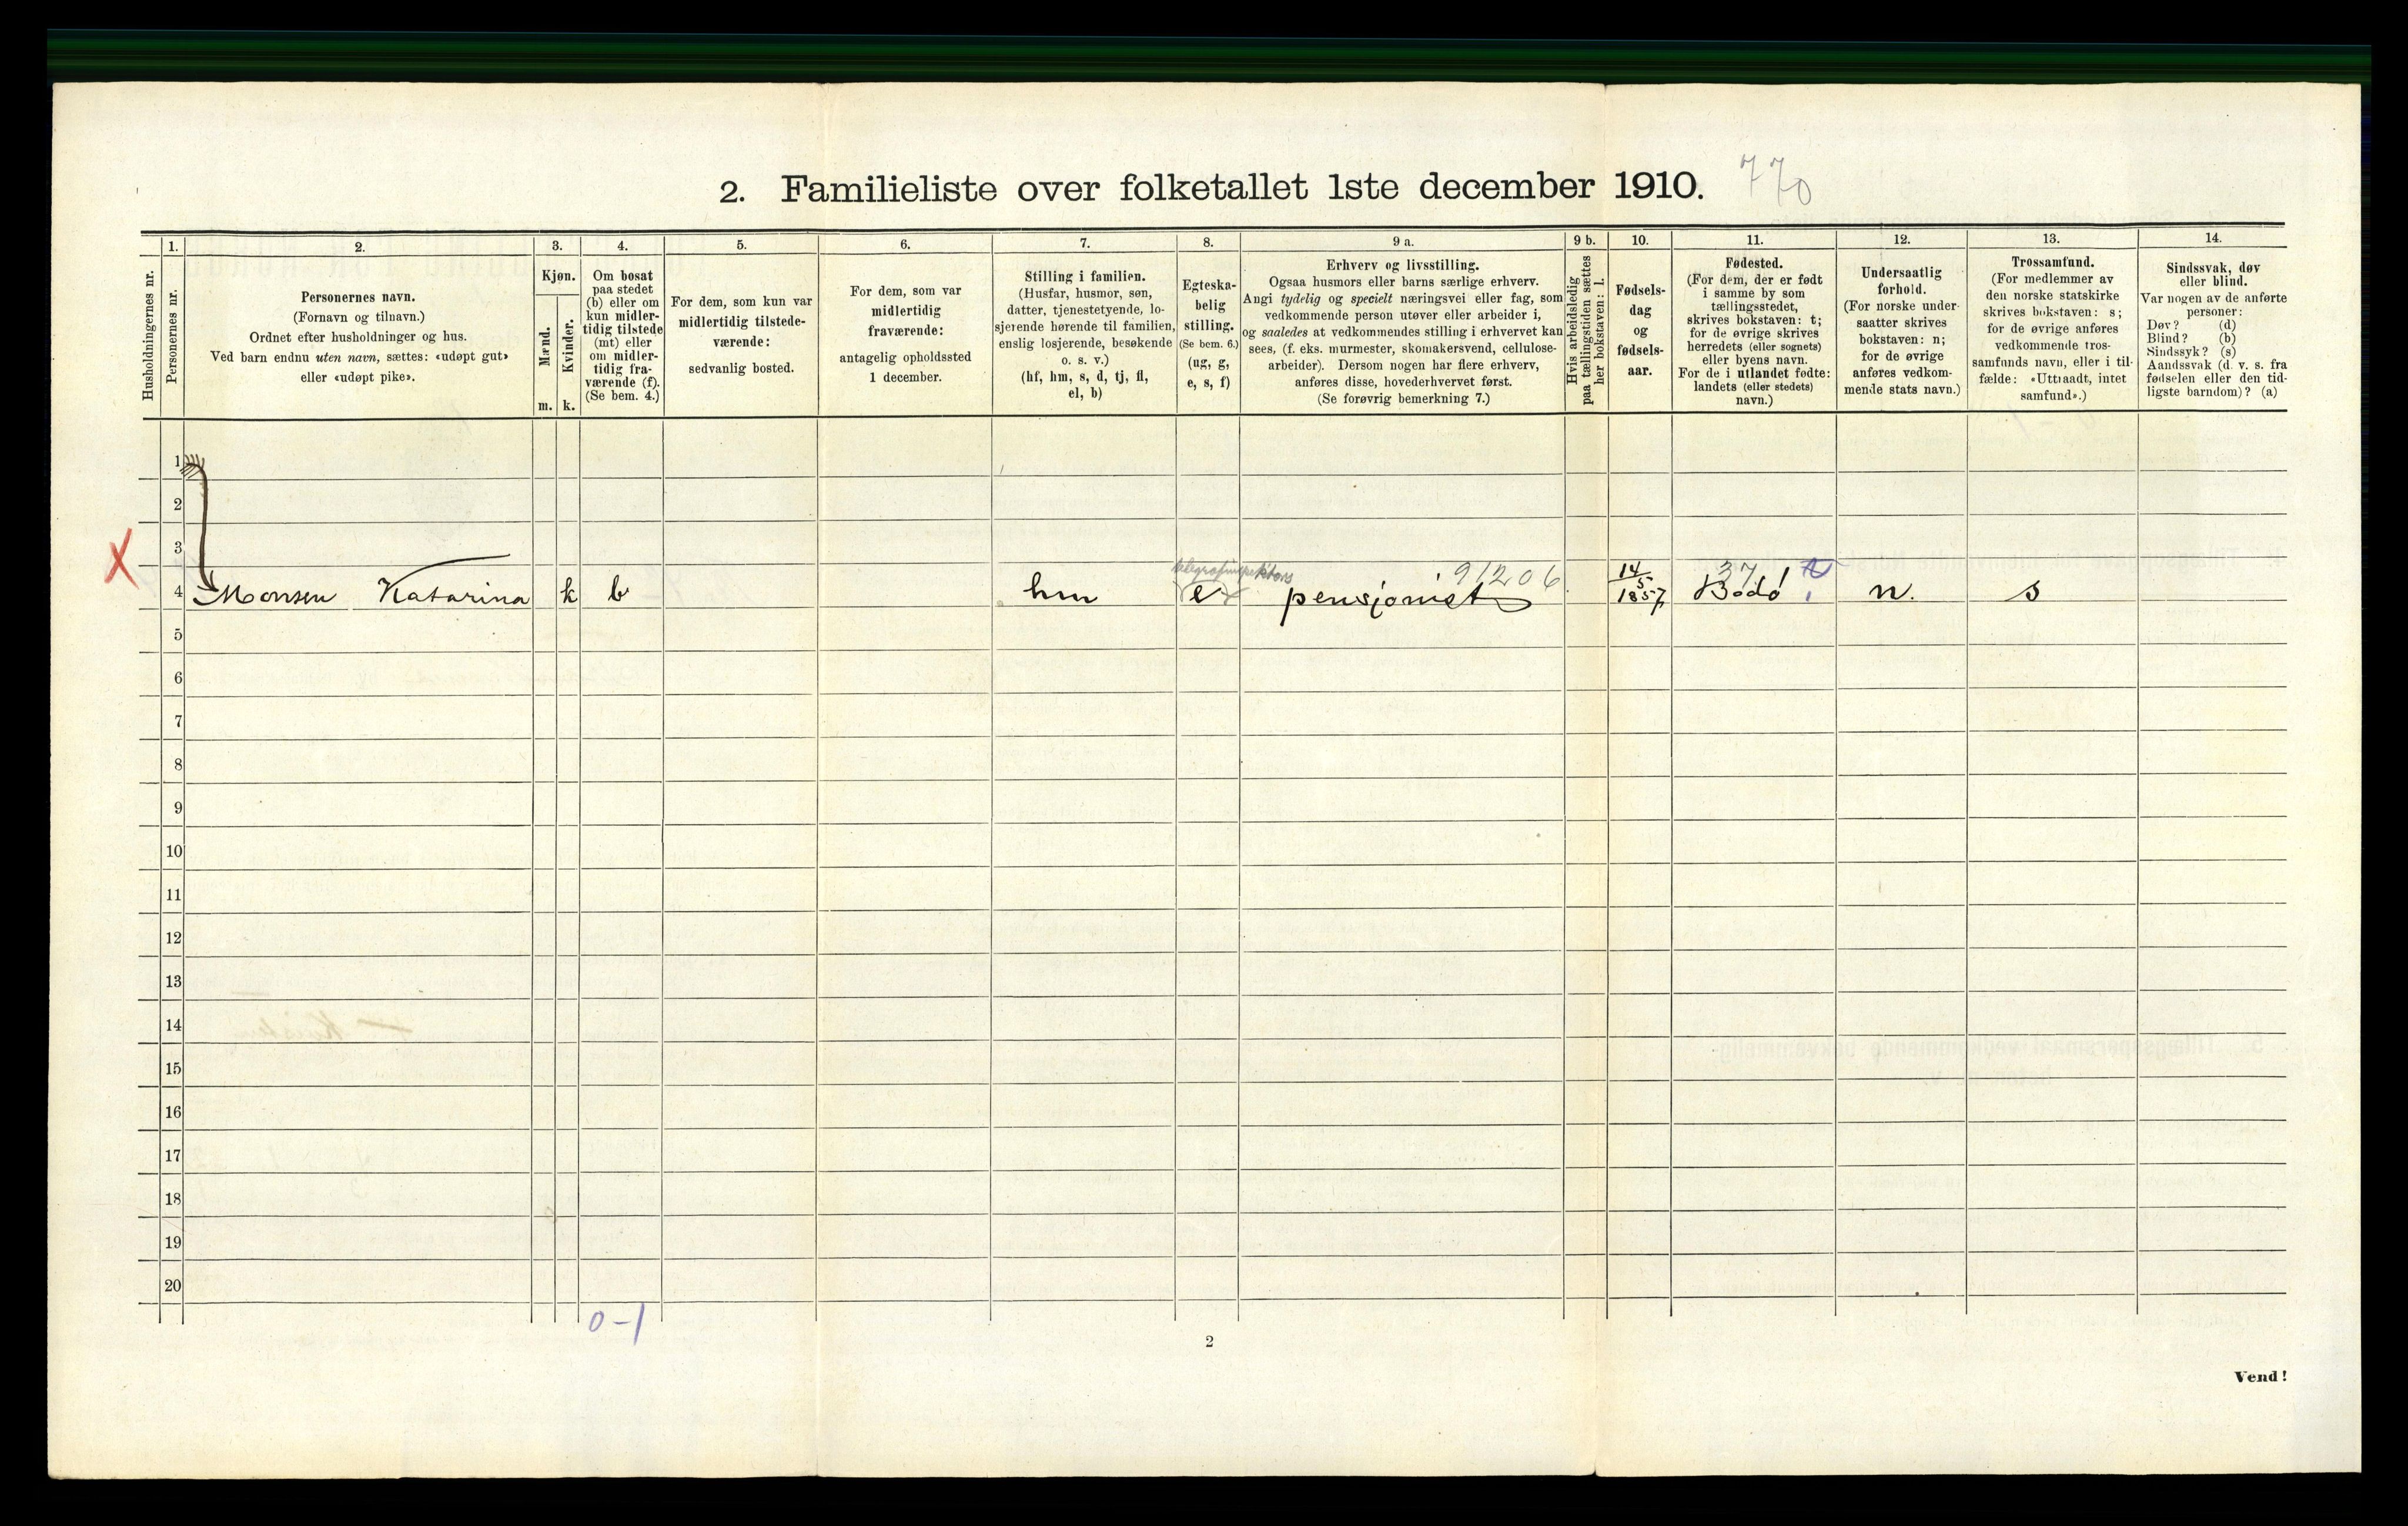 2. Familieliste over folketallet 1ste december 1910.
770
Husholdningernes nr.
1.
Personernes nr.
2.
Personernes navn.
(Fornavn og tilnavn.)
Ordnet efter husholdninger og hus.
Ved barn endnu uten navn, sættes: «udøpt gut»
eller «udøpt pike».
3.
Kjøn.
Mænd.
m.
Kvinder.
k.
4.
Om bosat
paa stedet
(b) eller om
kun midler-
tidig tilstede
(mt) eller
om midler-
tidig fra-
værende (f).
(Se bem. 4.)
5.
For dem, som kun var
midlertidig tilstede-
værende:
sedvanlig bosted.
6.
For dem, som var
midlertidig
fraværende:
antagelig opholdssted
1 december.
7.
Stilling i familien.
(Husfar, husmor, søn,
datter, tjenestetyende, lo-
sjerende hørende til familien,
enslig losjerende, besøkende
o. s. v.)
(hf, hm, s, d, tj, fl,
el, b)
8.
Egteska-
belig
stilling.
(Se bem. 6.)
(ug, g,
e, s, f)
9 a.
Erhverv og livsstilling.
Ogsaa husmors eller barns særlige erhverv.
Angi tydelig og specielt næringsvei eller fag, som
vedkommende person utøver eller arbeider i,
og saaledes at vedkommendes stilling i erhvervet kan
sees, (f. eks. murmester, skomakersvend, cellulose-
arbeider). Dersom nogen har flere erhverv,
anføres disse, hovederhvervet først.
(Se forøvrig bemerkning 7.)
9 b.
Hvis arbeidsledig
paa tællingstiden sættes
her bokstaven: l.
10.
Fødsels-
dag
og
fødsels-
aar.
11.
Fødested.
(For dem, der er født
i samme by som
tællingsstedet,
skrives bokstaven: t;
for de øvrige skrives
herredets (eller sognets)
eller byens navn.
For de i utlandet fødte:
landets (eller stedets)
navn.)
12.
Undersaatlig
forhold.
(For norske under-
saatter skrives
bokstaven: n;
for de øvrige
anføres vedkom-
mende stats navn.)
13.
Trossamfund.
(For medlemmer av
den norske statskirke
skrives bokstaven: s;
for de øvrige anføres
vedkommende tros-
samfunds navn, eller i til-
fælde: «Uttraadt, intet
samfund».)
14.
Sindssvak, døv
eller blind.
Var nogen av de anførte
personer:
Døv? (d)
Blind? (b)
Sindssyk? (s)
Aandssvak (d. v. s. fra
fødselen eller den tid-
ligste barndom)? (a)
1
2
3
X
telegrafinspektørs 91206 37
4 Monsen Katarina k b hm e pensjonist 14/5 1857 Bodø n. s
5
6
7
8
9
10
11
12
13
14
15
16
17
18
19
20
0-1
2
Vend!